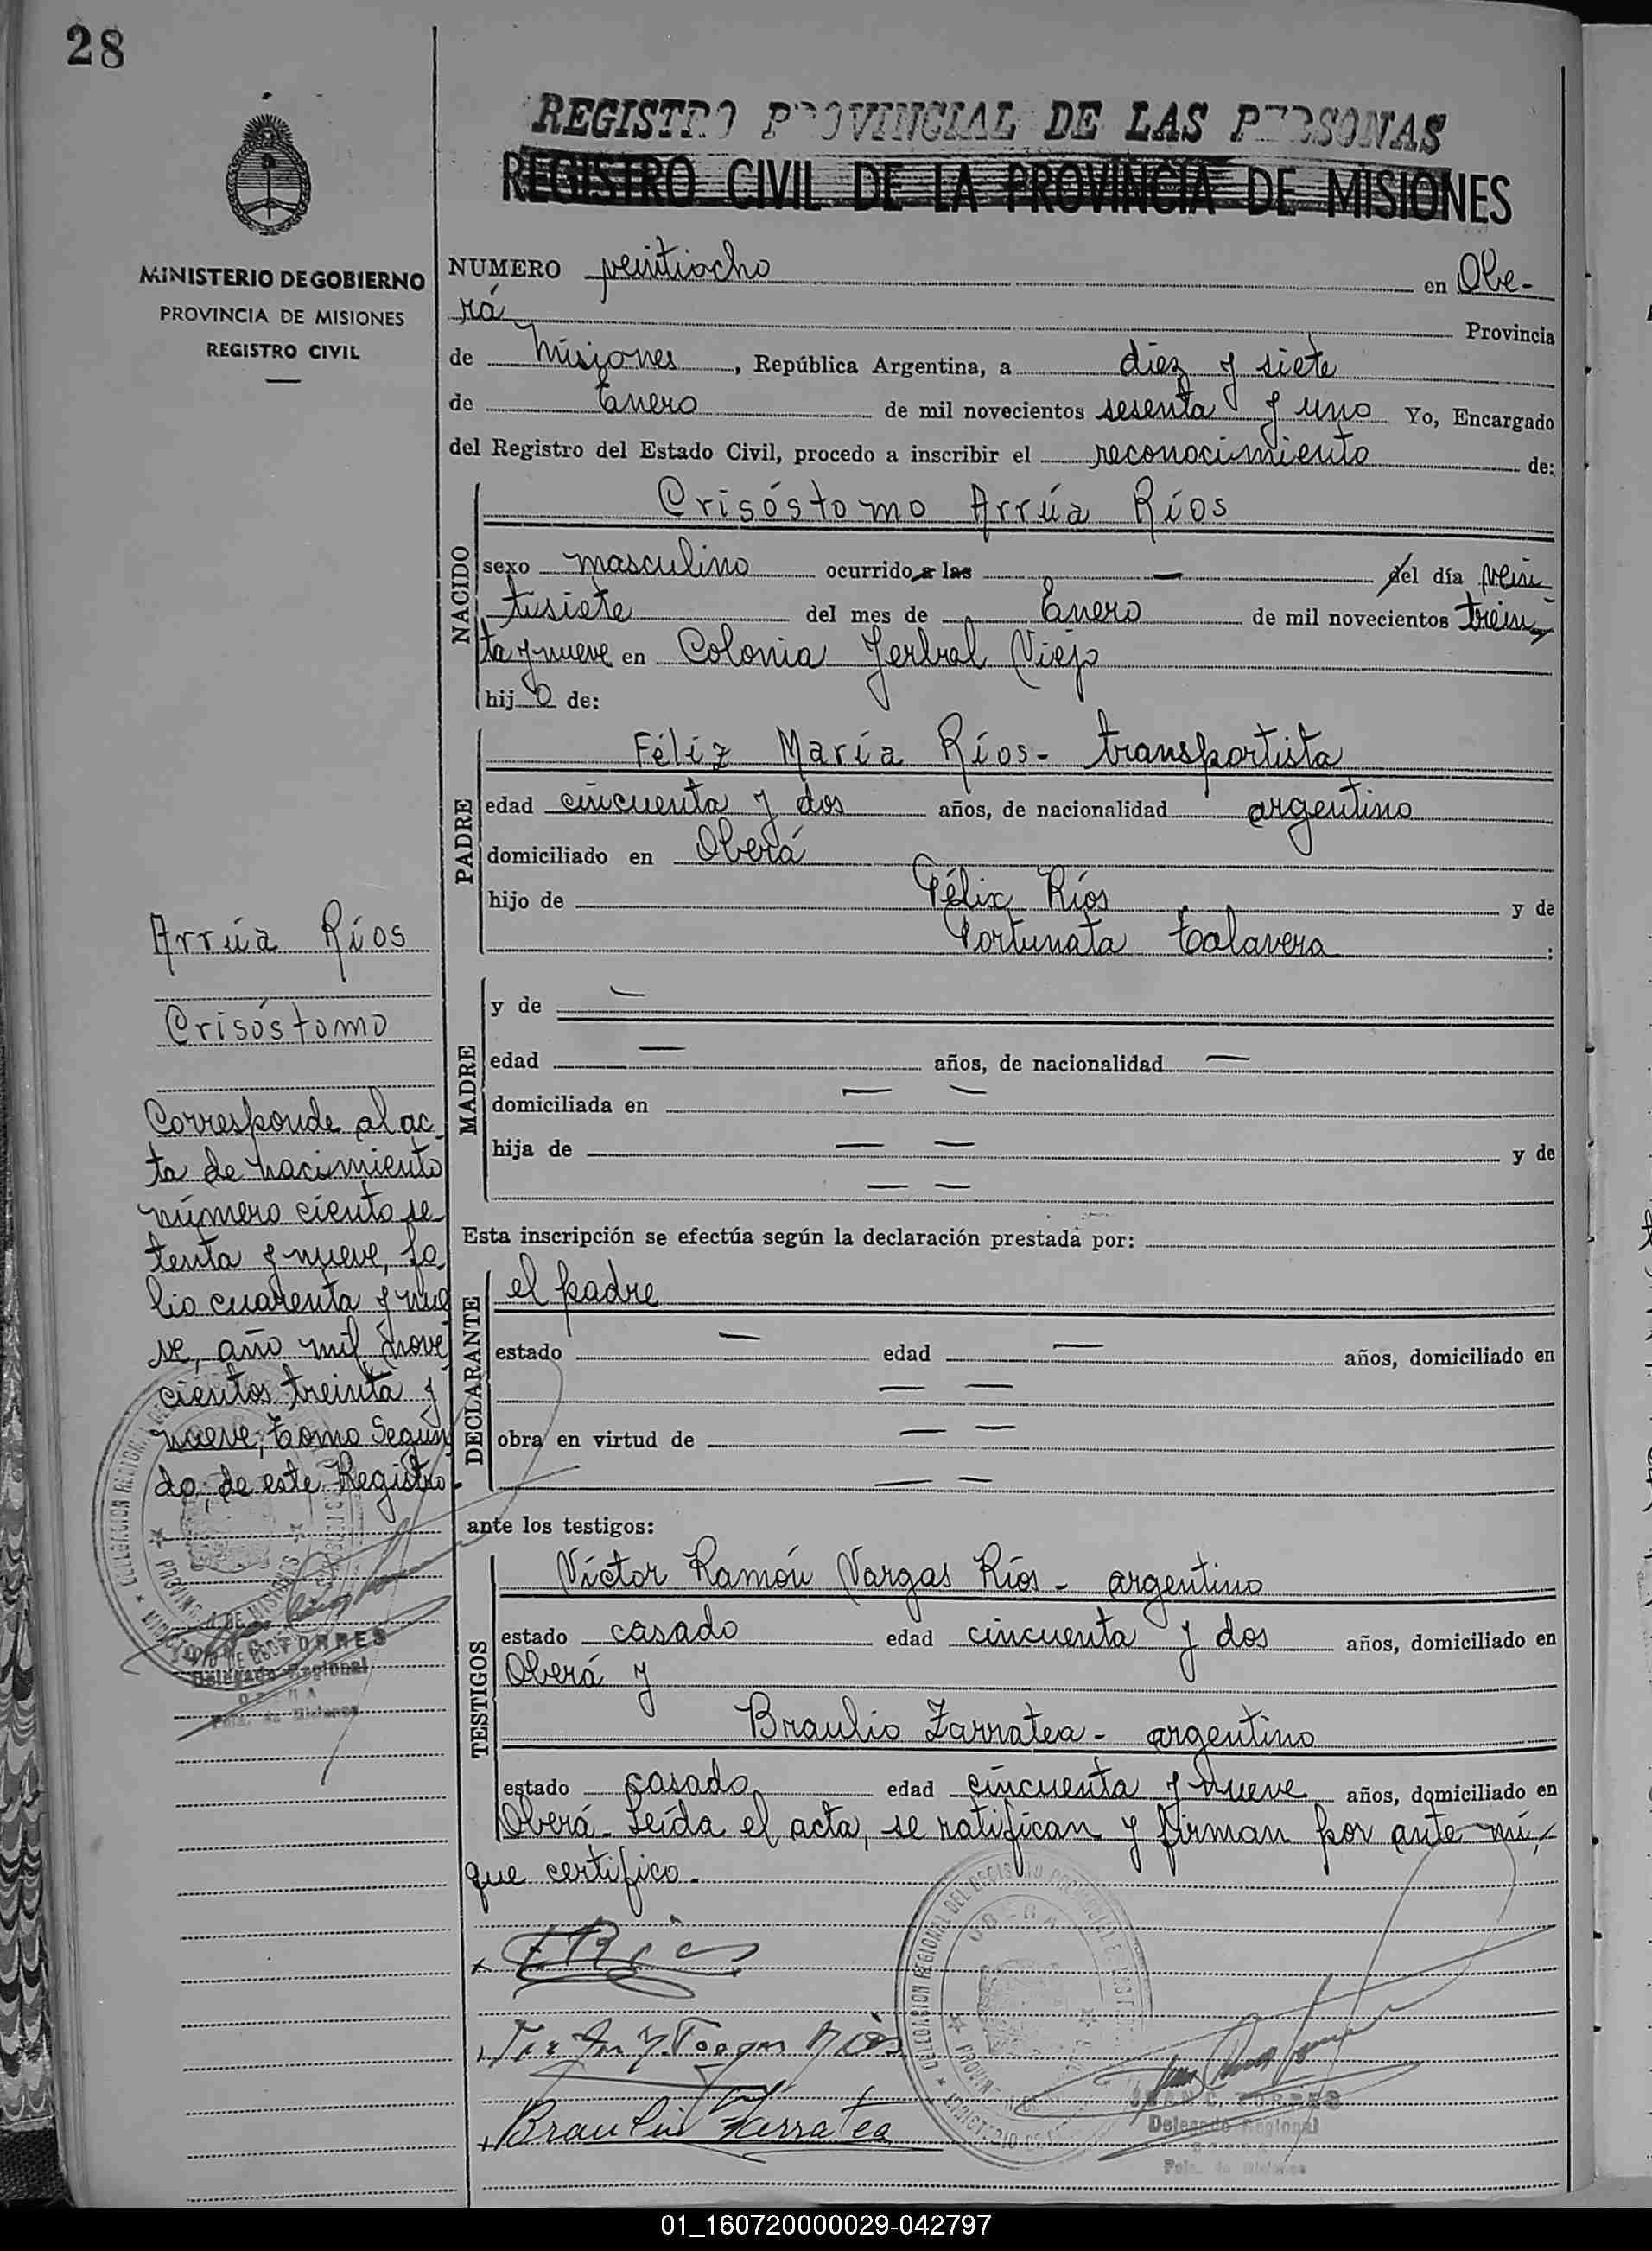 28
REGISTRO PROVINCIAL DE LAS PERSONAS
REGISTRO CIVIL DE LA PROVINCIA DE MISIONES
MINISTERIO DE GOBIERNO
PROVINCIA DE MISIONES
REGISTRO CIVIL
NUMERO veintiocho en Obe-
rá Provincia
de Misiones, República Argentina, a diez y siete
de Enero de mil novecientos sesenta y uno Yo, Encargado
del Registro del Estado Civil, procedo a inscribir el reconocimiento de:
NACIDO
Crisóstomo Arrúa Ríos
sexo masculino ocurrido a las — del día vein
tisiete del mes de Enero de mil novecientos trein
ta y nueve en Colonia Yerbal Viejo
hijo de:
PADRE
Féliz María Ríos - transportista
edad cincuenta y dos años, de nacionalidad argentino
domiciliado en Oberá
hijo de Félix Ríos y de
Fortunata Talavera :
MADRE
y de —
edad — años, de nacionalidad —
domiciliada en — —
hija de — — y de
— —
Esta inscripción se efectúa según la declaración prestada por:
DECLARANTE
el padre
estado — edad — años, domiciliado en
— —
obra en virtud de — —
— —
ante los testigos:
TESTIGOS
Víctor Ramón Vargas Ríos - argentino
estado casado edad cincuenta y dos años, domiciliado en
Oberá y
Braulio Zarratea - argentino
estado casado edad cincuenta y nueve años, domiciliado en
Oberá - Leída el acta, se ratifican y firman por ante mí,
que certifico.
Arrúa Ríos
Crisóstomo
Corresponde al ac
ta de nacimiento
número ciento se
tenta y nueve, fo
lio cuarenta y nue
ve, año mil nove
cientos treinta y
nueve, tomo Segun
do, de este Registro.
TORRES
Delegado Regional
OBERA
Pcia. de Misiones
F. Ríos
Braulio Zarratea
JUAN C. TORRES
Delegado Regional
OBERA
Pcia. de Misiones
01_160720000029-042797